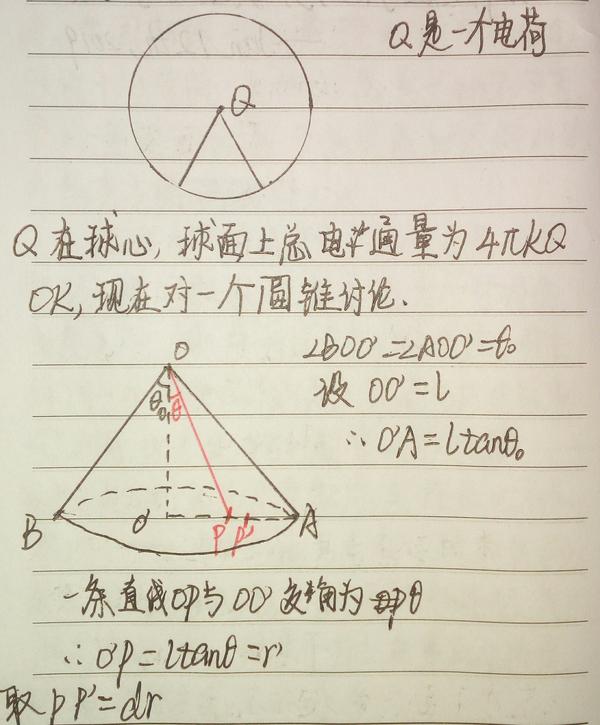 Q是一个电荷
Q
Q在球心,球面上总电通量为4πkQ
OK,现在对一个圆锥讨论.
O
∠BOO'=∠AOO'=θ₀
设 OO'=l
∴ O'A=ltanθ₀
θ₀ θ
B O' P P' A
一条直线OP与OO'交角为θ
∴ O'P=ltanθ=r
取PP'=dr